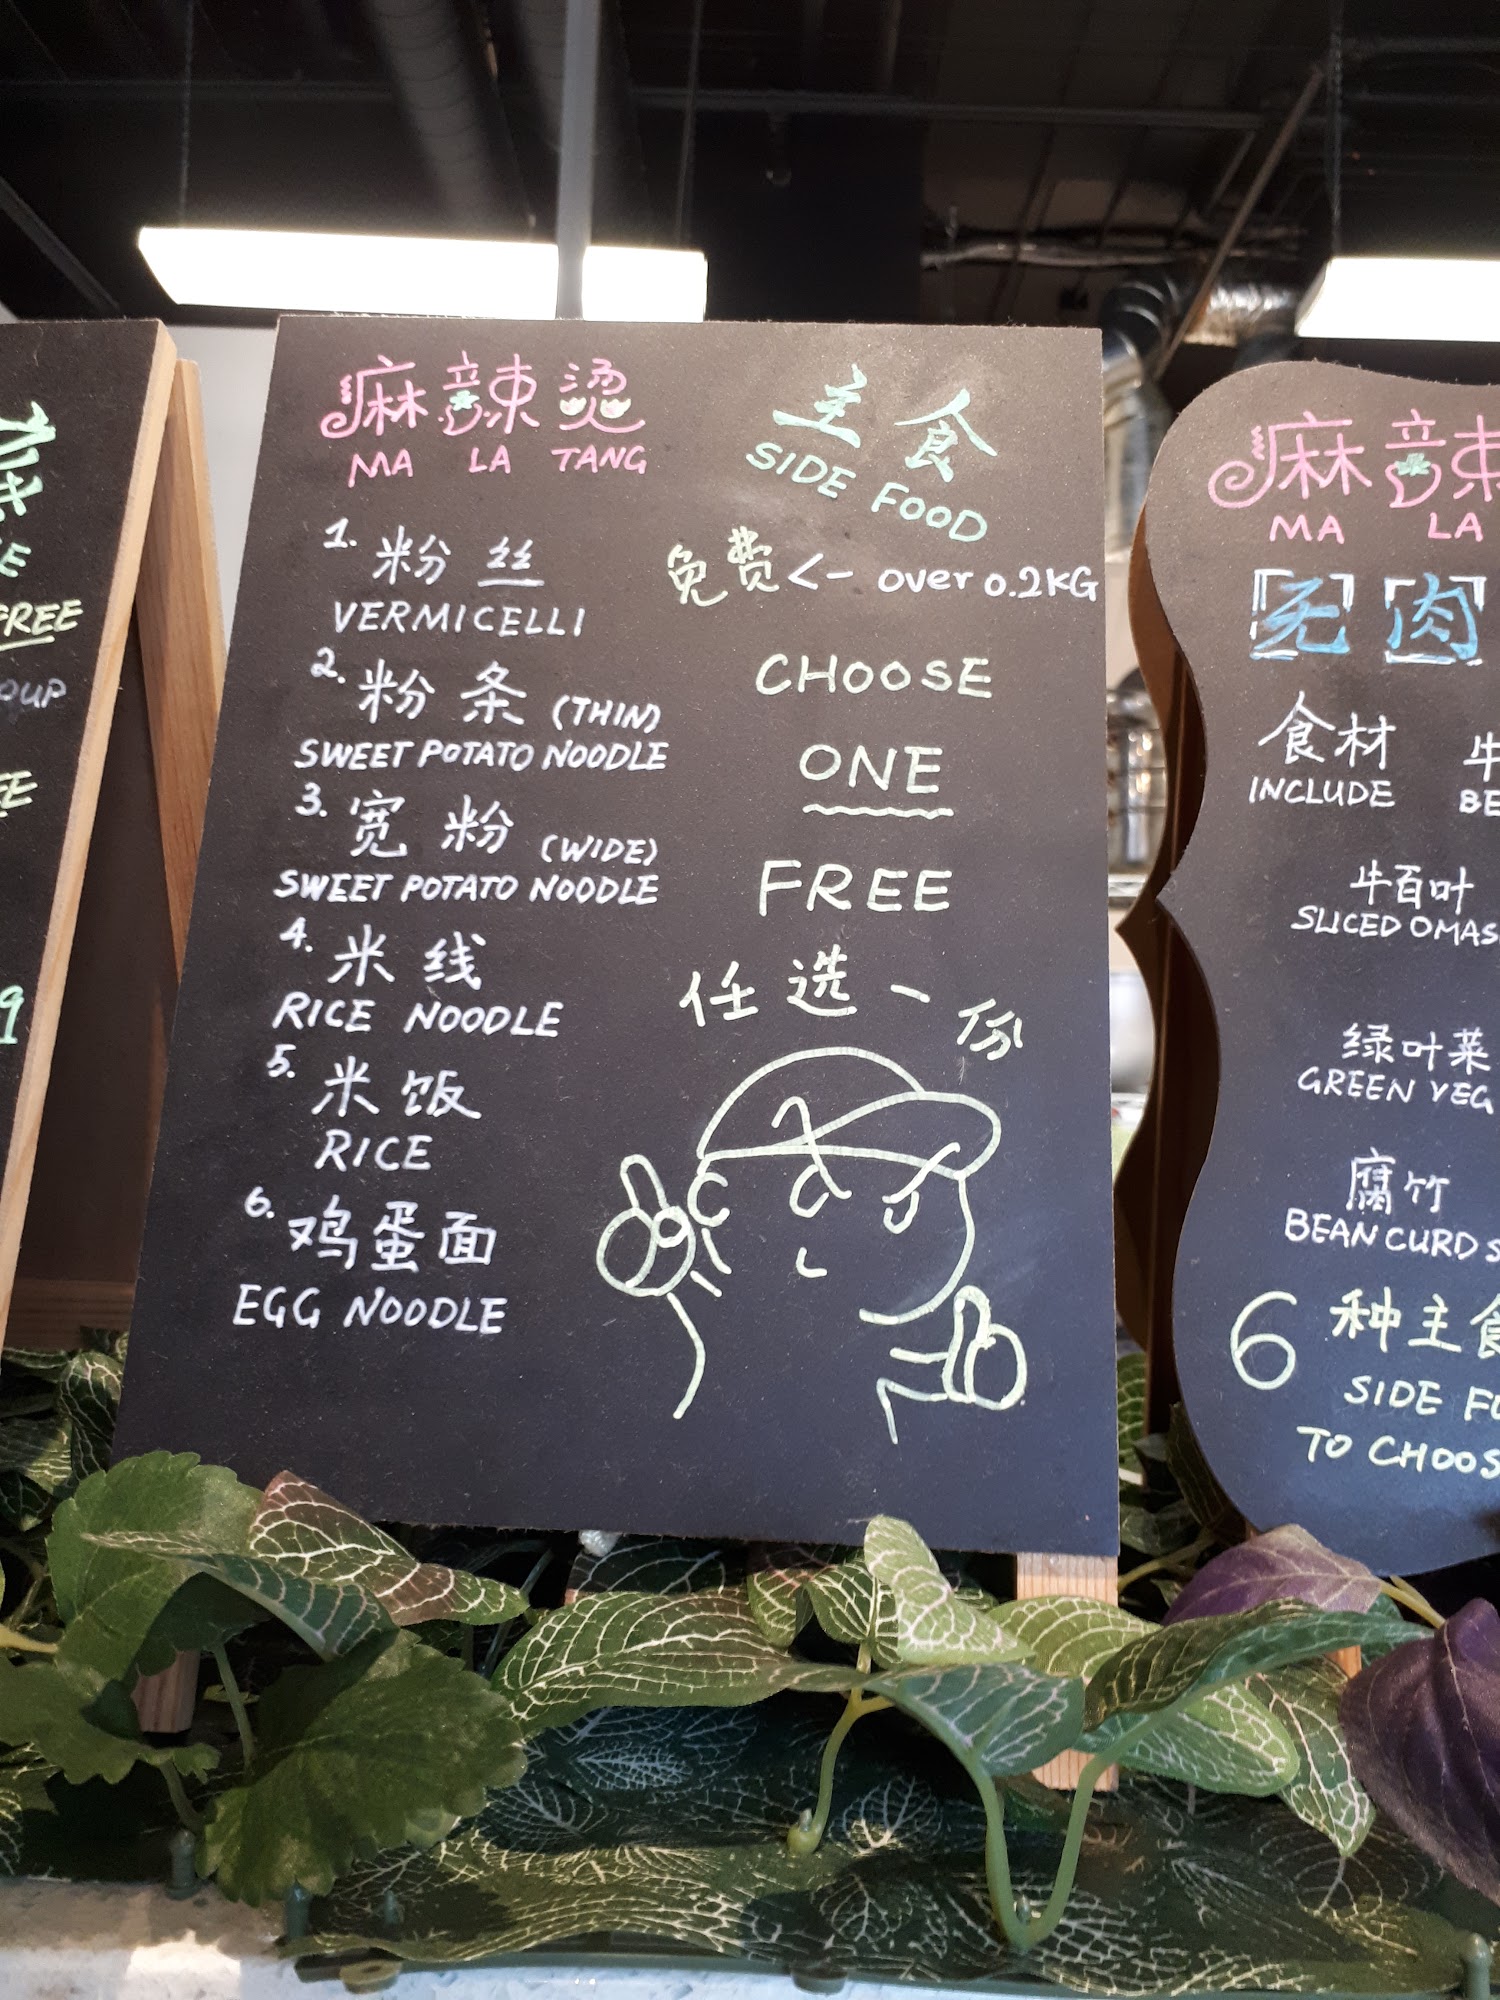 FREE
麻辣烫
MA LA TANG
主食
SIDE FOOD
1. 粉丝
VERMICELLI
免费 <- over 0.2KG
2. 粉条 (THIN)
SWEET POTATO NOODLE
3. 宽粉 (WIDE)
SWEET POTATO NOODLE
4. 米线
RICE NOODLE
5. 米饭
RICE
6. 鸡蛋面
EGG NOODLE
CHOOSE
ONE
FREE
任选一份
麻辣
MA LA
无肉
食材
INCLUDE
牛百叶
SLICED OMAS
绿叶菜
GREEN VEG
腐竹
BEAN CURD S
6 种主食
SIDE FO
TO CHOOS